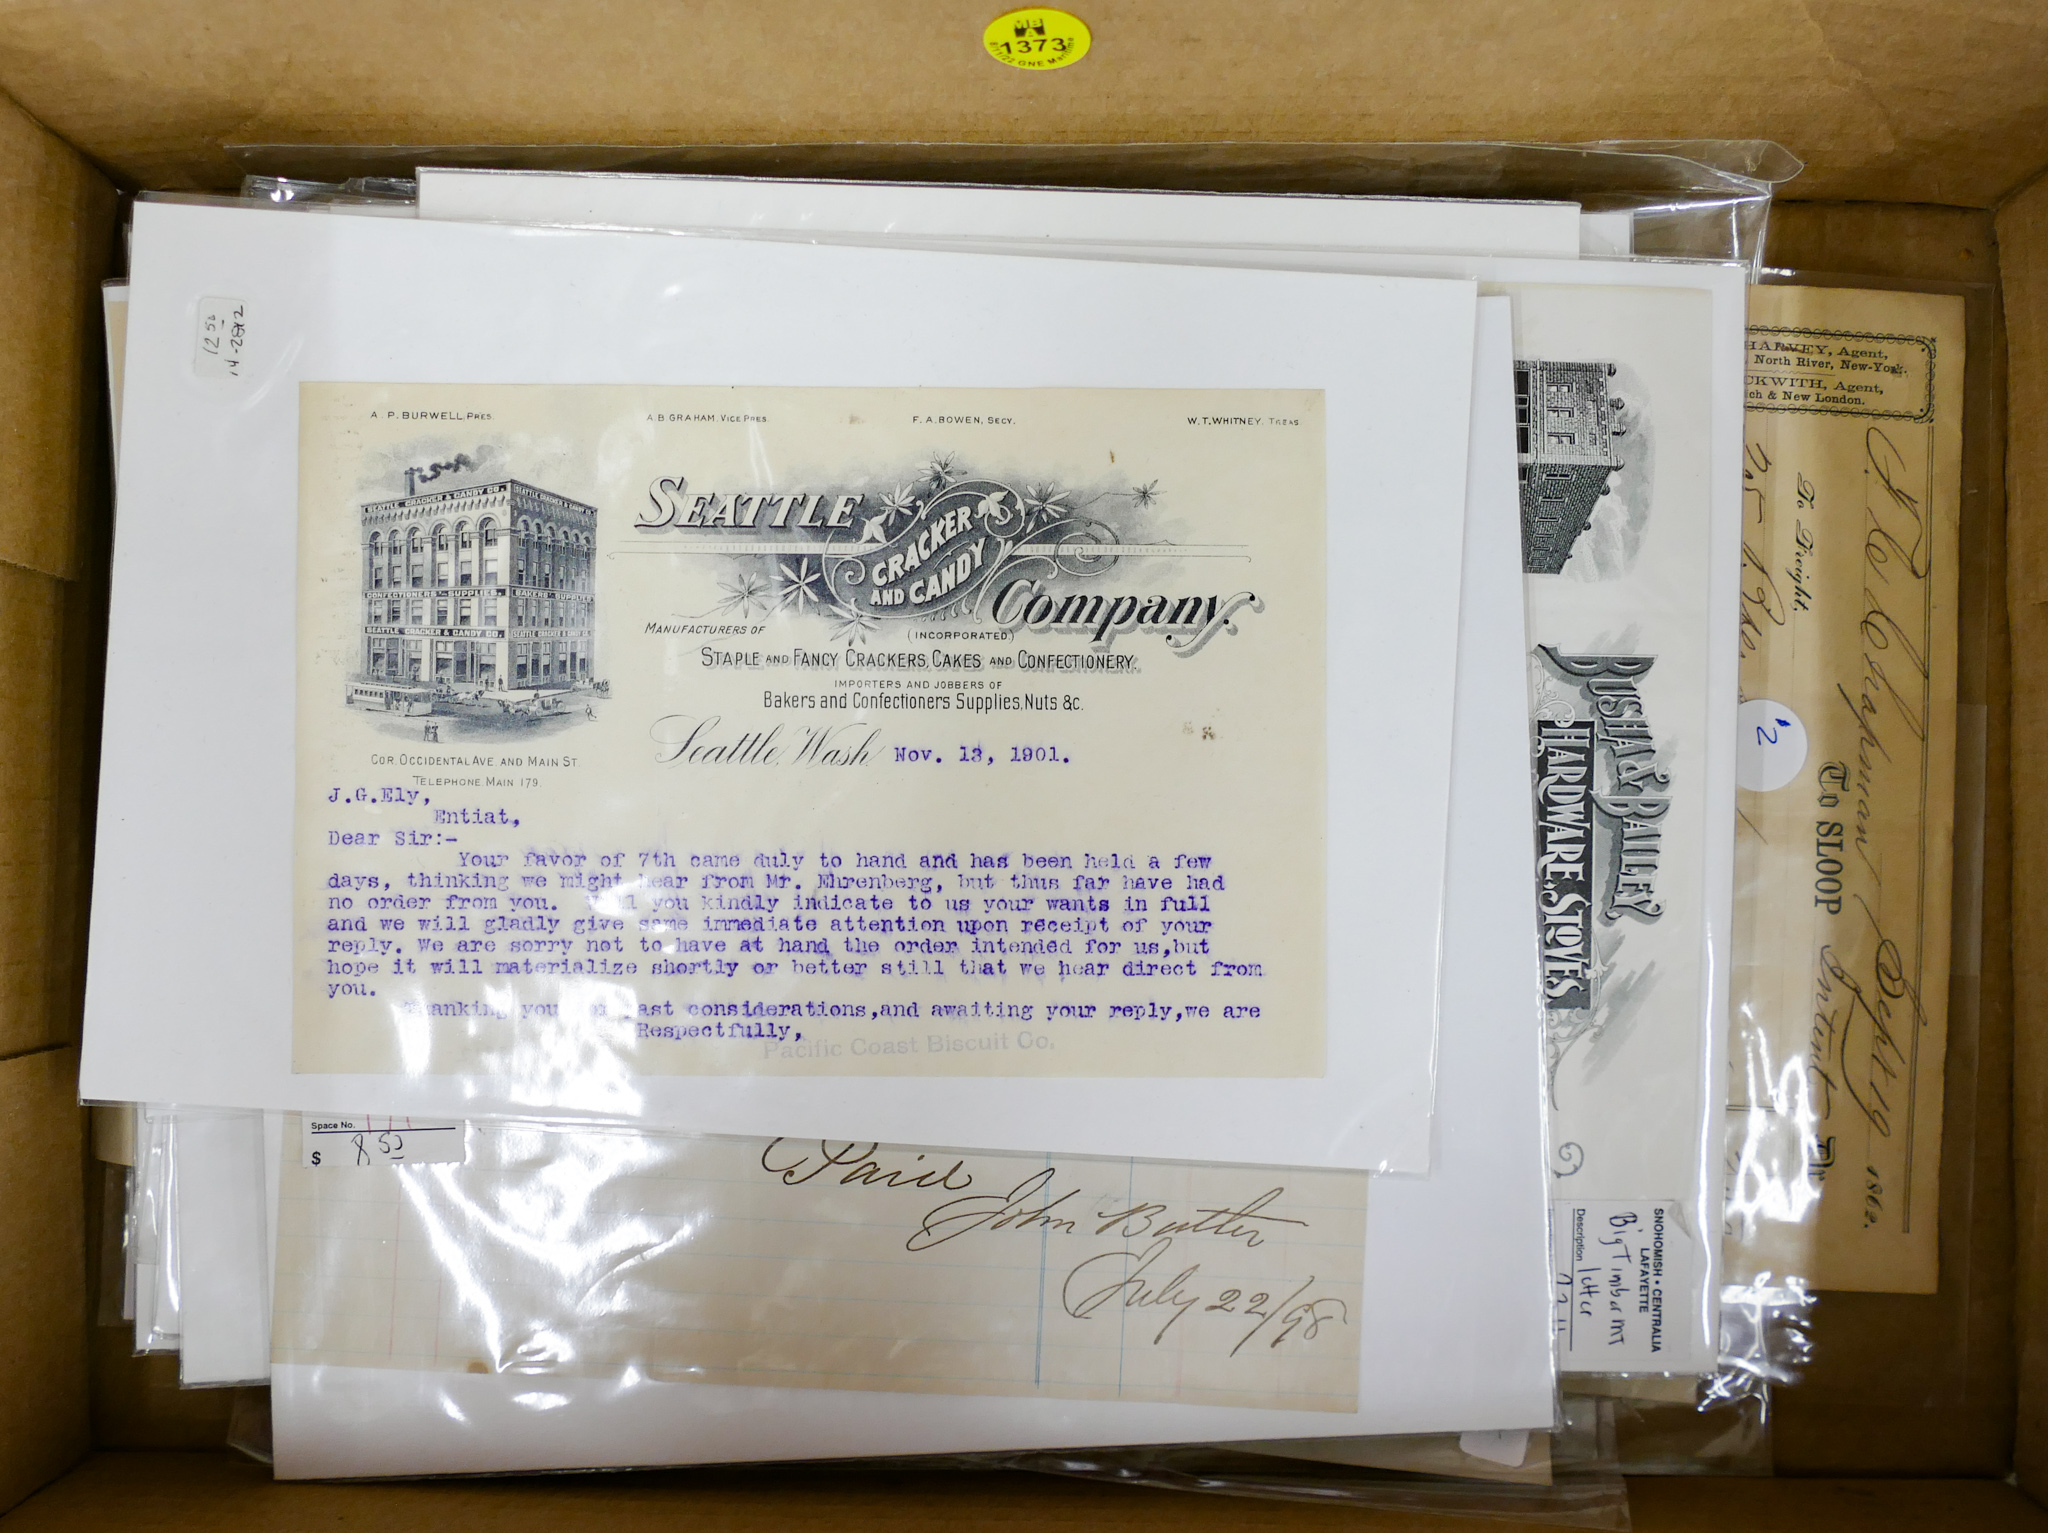 MBA
1373
8/11/22 GNE Maritime
1250
14-2842
A. P. BURWELL, PRES.
A. B. GRAHAM, VICE PRES.
F. A. BOWEN, SECY.
W. T. WHITNEY, TREAS.
SEATTLE CRACKER & CANDY CO.
SEATTLE CRACKER & CANDY CO.
CONFECTIONERS' SUPPLIES.
BAKERS' SUPPLIES
SEATTLE CRACKER & CANDY CO.
SEATTLE CRACKER & CANDY CO.
SEATTLE
CRACKER
AND CANDY
Company.
(INCORPORATED.)
MANUFACTURERS OF
STAPLE AND FANCY CRACKERS, CAKES AND CONFECTIONERY.
IMPORTERS AND JOBBERS OF
Bakers and Confectioners Supplies, Nuts &c.
COR. OCCIDENTAL AVE. AND MAIN ST.
TELEPHONE MAIN 179.
Seattle, Wash. Nov. 13, 1901.
J.G.Ely,
Entiat,
Dear Sir:-
Your favor of 7th came duly to hand and has been held a few
days, thinking we might hear from Mr. Ehrenberg, but thus far have had
no order from you. Will you kindly indicate to us your wants in full
and we will gladly give same immediate attention upon receipt of your
reply. We are sorry not to have at hand the order intended for us,but
hope it will materialize shortly or better still that we hear direct from
you.
Thanking you for past considerations,and awaiting your reply,we are
Respectfully,
Pacific Coast Biscuit Co.
Space No.
$ 8.50
Paid
John Butler
July 22/98
BUSHA & BAILEY,
HARDWARE, STOVES
SNOHOMISH • CENTRALIA
LAFAYETTE
Big Timber MT
Description letter
HARVEY, Agent,
North River, New-York.
CKWITH, Agent,
ch & New London.
Chapman Sept 19 1862.
To Freight,
To SLOOP
Dr
2